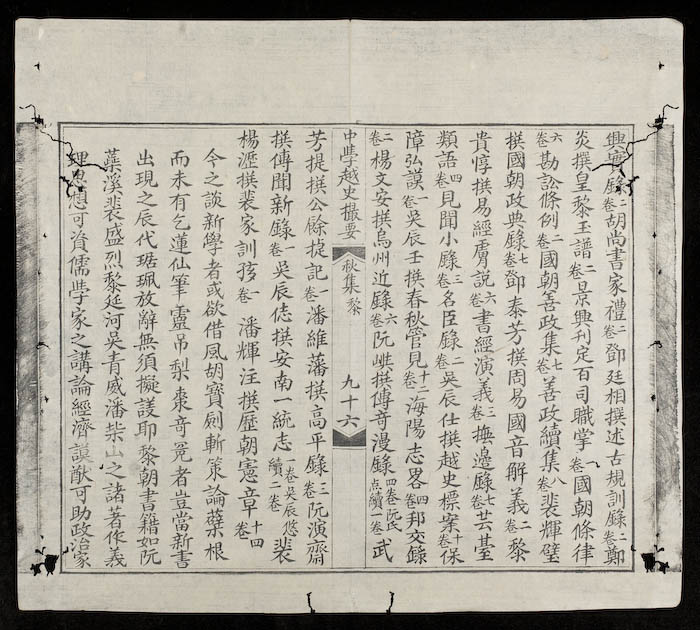 興實錄二卷胡尚書家禮二卷鄧廷相撰述古規訓錄二卷鄭
炎撰皇黎玉譜二卷景興刊定百司職掌一卷國朝條律
六卷勘訟條例二卷國朝善政集七卷善政續集八卷裴輝璧
撰國朝政典錄七卷鄧泰芳撰周易國音解義二卷黎
貴惇撰易經膚說六卷書經演義三卷撫邊錄七卷芸臺
類語四卷見聞小錄三卷名臣錄二卷吳辰仕撰越史標案十卷保
障弘謨一卷吳辰壬撰春秋管見十二卷海陽志畧四卷邦交錄
二卷楊文安撰烏州近錄六卷阮嶼撰傳奇漫錄四卷阮氏点續一卷武
中學越史撮要 秋集黎 九十六
芳提撰公餘捷記一卷潘維藩撰高平錄三卷阮演齋
撰傳聞新錄一卷吳辰俧撰安南一統志一卷吳辰悠續二卷裴
楊瀝撰裴家訓孩一卷潘輝注撰歷朝憲章十四卷
今之談新學者或欲借風胡寶劍斬策論蘗根
而未有乞蓮仙筆靈吊梨棗音冤者豈當新書
出現之辰代琚珮放辭無須擬議耶黎朝書籍如阮
蘂溪裴盛烈黎延河吳青威潘柴山之諸著作義
理思想可資儒學家之講論經濟謨猷可助政治家